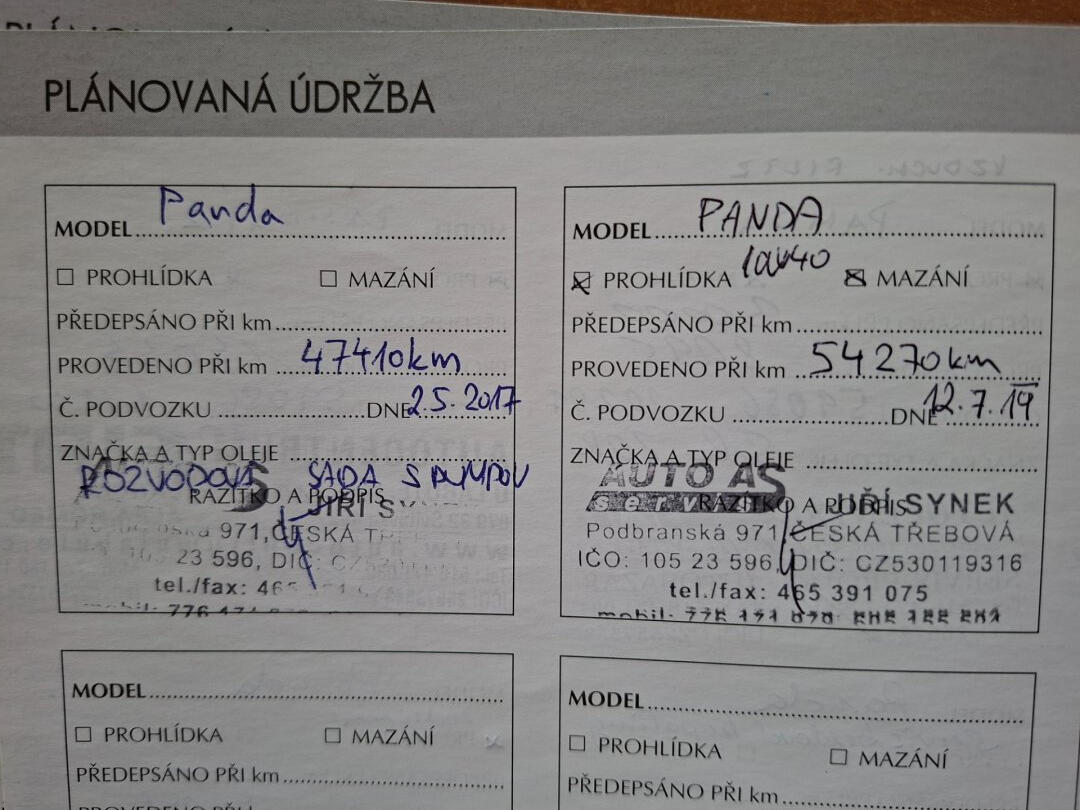 PLÁNOVANÁ ÚDRŽBA
MODEL Panda
PROHLÍDKA MAZÁNÍ
PŘEDEPSÁNO PŘI km
PROVEDENO PŘI km 47410km
Č. PODVOZKU DNE 2.5.2017
ZNAČKA A TYP OLEJE
ROZVODOVÁ SADA S PUMPOU
RAZÍTKO A PODPIS
JIŘÍ
971, ČESKÁ
23 596, DIČ:
tel./fax:
MODEL PANDA
10W40
PROHLÍDKA MAZÁNÍ
PŘEDEPSÁNO PŘI km
PROVEDENO PŘI km 54270km
Č. PODVOZKU DNE 12.7.19
ZNAČKA A TYP OLEJE
AUTO AS
servis RAZÍTKO A PODPIS JIŘÍ SYNEK
Podbranská 971, ČESKÁ TŘEBOVÁ
IČO: 105 23 596, DIČ: CZ530119316
tel./fax: 465 391 075
mobil:
MODEL
PROHLÍDKA MAZÁNÍ
PŘEDEPSÁNO PŘI km
PROVEDENO PŘI
MODEL
PROHLÍDKA MAZÁNÍ
PŘEDEPSÁNO PŘI km